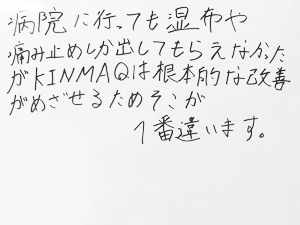 病院に行っても湿布や
痛み止めしか出してもらえなかった
がKINMAQは根本的な改善
がめざせるためそこが
1番違います。